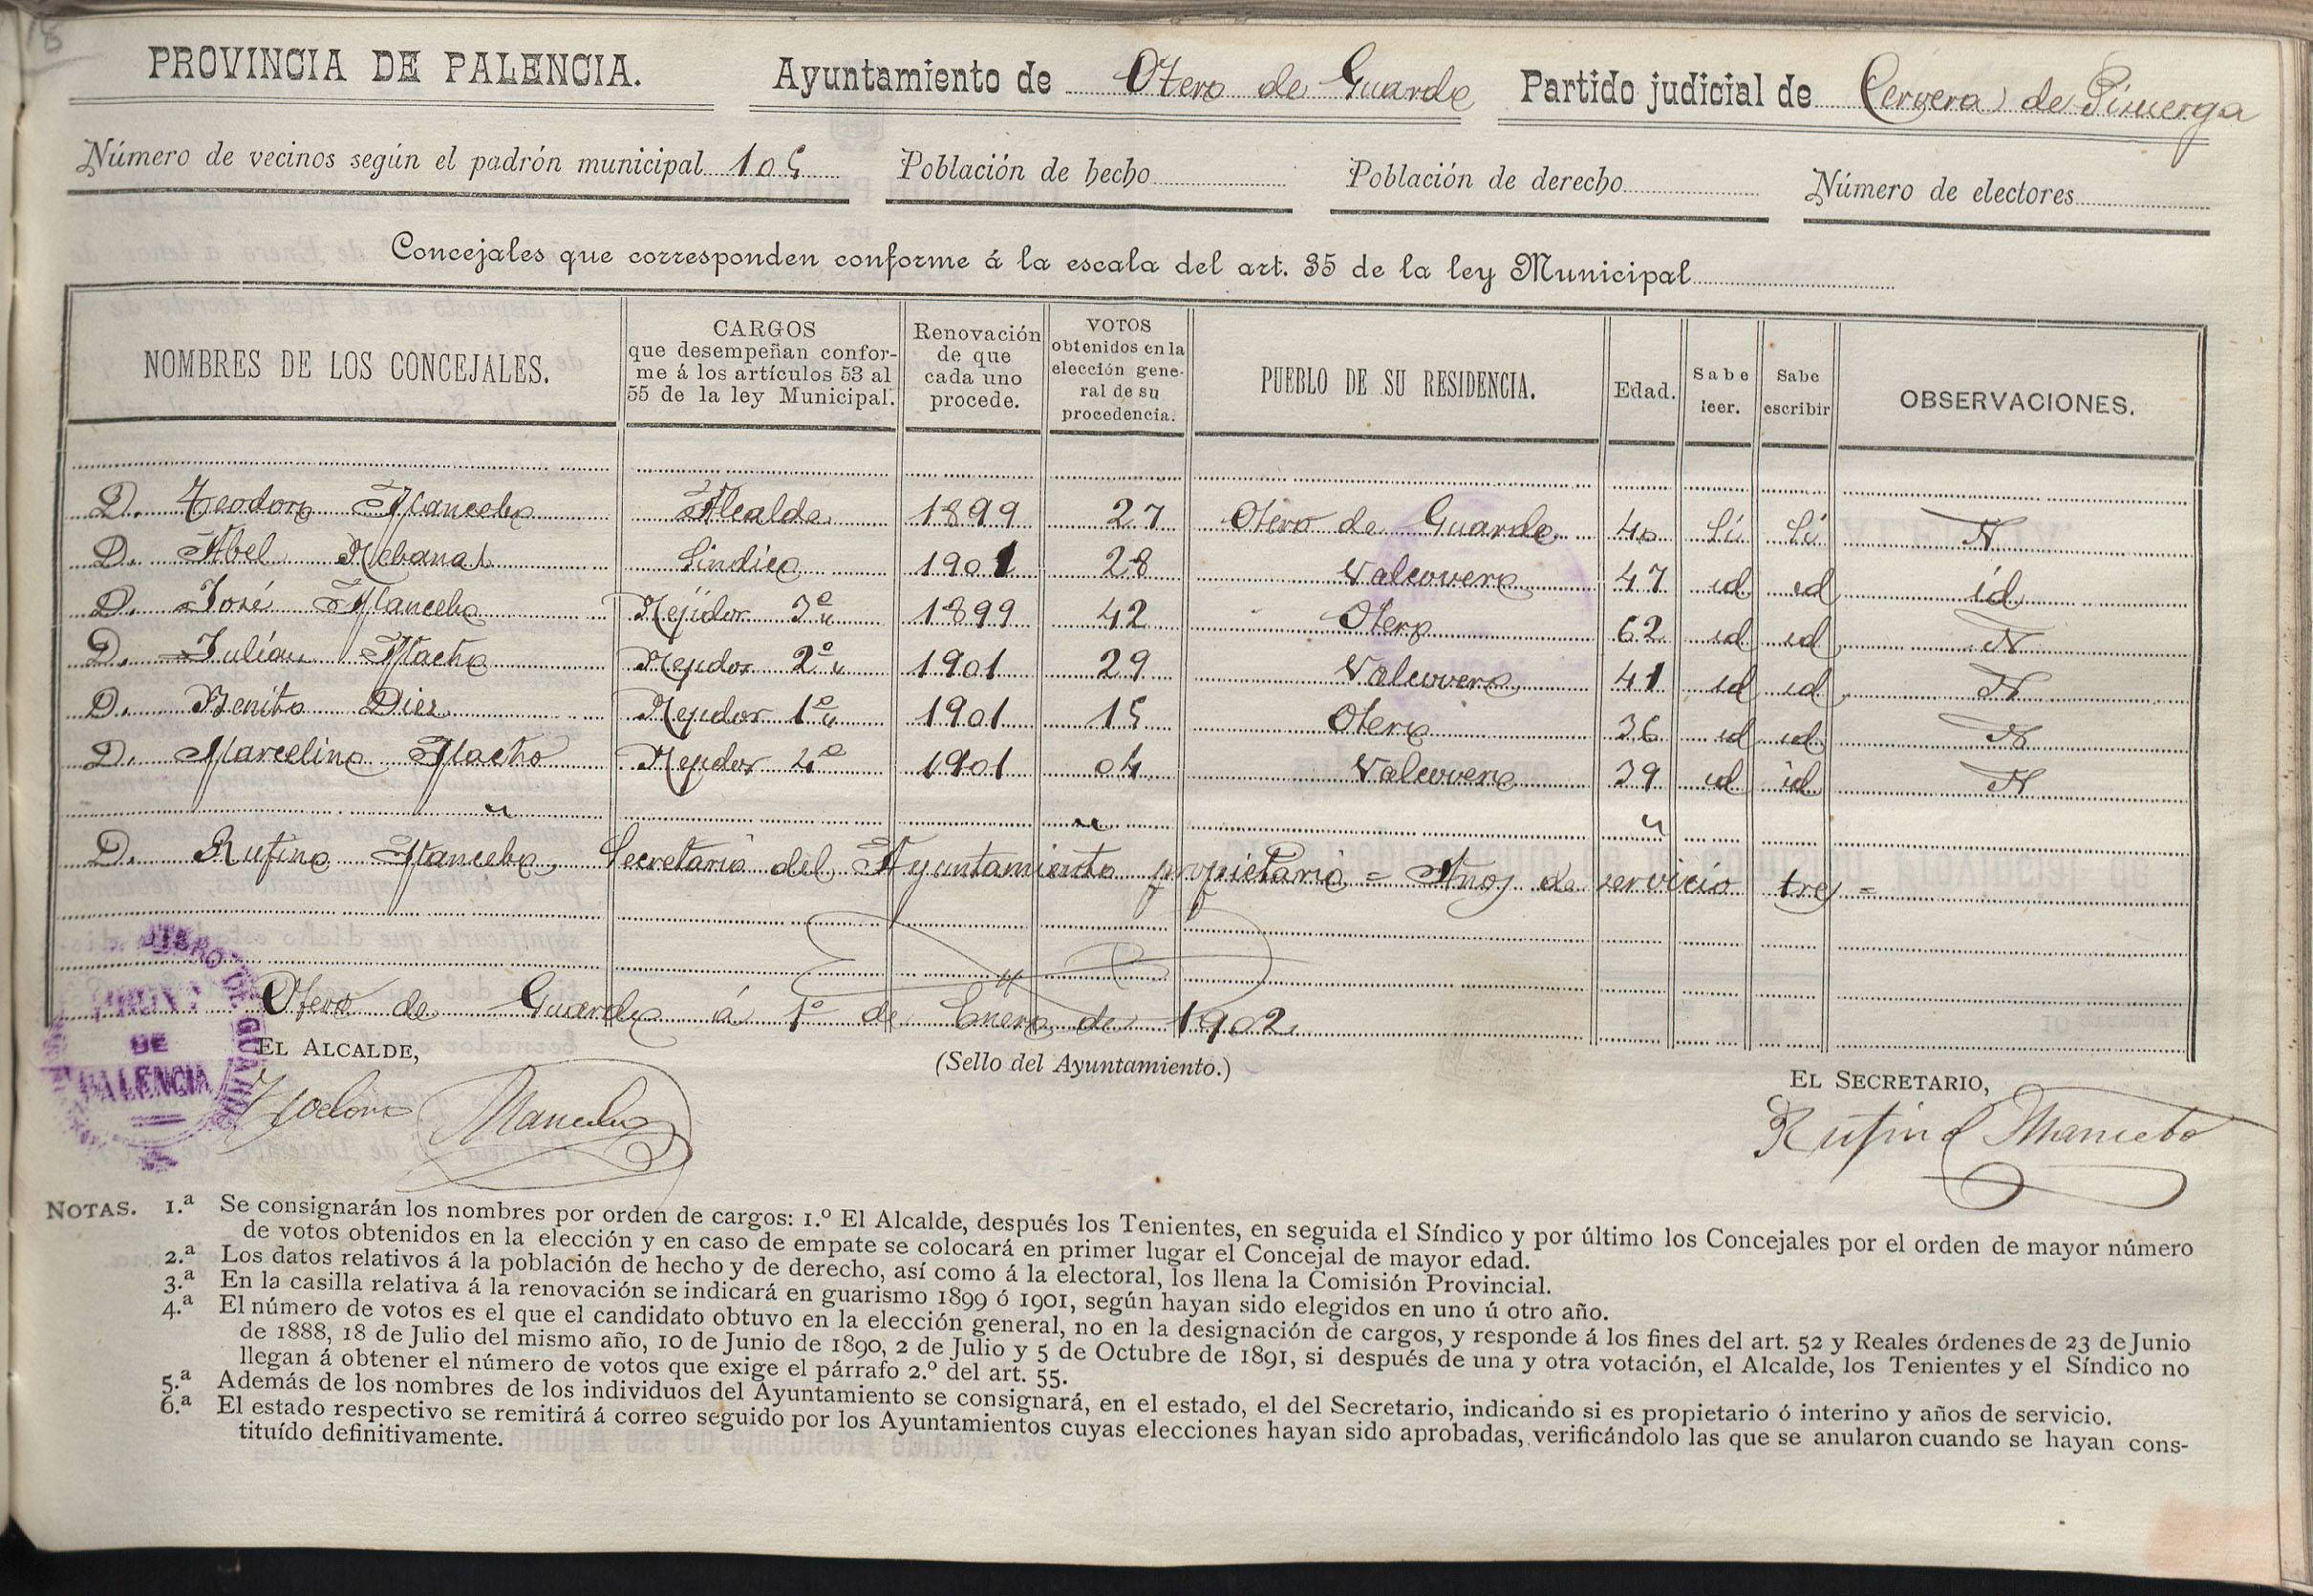 18
PROVINCIA DE PALENCIA. Ayuntamiento de Otero de Guardo Partido judicial de Cervera de Pisuerga
Número de vecinos según el padrón municipal 105 Población de hecho Población de derecho Número de electores
Concejales que corresponden conforme á la escala del art. 35 de la ley Municipal
NOMBRES DE LOS CONCEJALES. CARGOS que desempeñan conforme á los artículos 53 al 55 de la ley Municipal. Renovación de que cada uno procede. VOTOS obtenidos en la elección general de su procedencia. PUEBLO DE SU RESIDENCIA. Edad. Sabe leer. Sabe escribir OBSERVACIONES.
D. Teodoro Mancebo Alcalde 1899 27 Otero de Guardo 40 Si Si N
D. Abel Rebanal Sindico 1901 28 Valcovero 47 id id id
D. José Mancebo Rejidor 3º 1899 42 Otero 62 id id N
D. Julián Macho Rejidor 2º 1901 29 Valcovero 41 id id N
D. Benito Diez Rejidor 1º 1901 15 Otero 36 id id N
D. Marcelino Macho Rejidor 4º 1901 04 Valcovero 39 id id N
" " "
D. Rufino Mancebo, Secretario del Ayuntamiento propietario = Años de servicio tres =
Otero de Guardo á 1º de Enero de 1902
OTERO DE GUARDO
PROV.
DE
PALENCIA
EL ALCALDE,
(Sello del Ayuntamiento.)
EL SECRETARIO,
Teodoro Mancebo
Rufino Mancebo
NOTAS. 1.ª Se consignarán los nombres por orden de cargos: 1.º El Alcalde, después los Tenientes, en seguida el Síndico y por último los Concejales por el orden de mayor número
de votos obtenidos en la elección y en caso de empate se colocará en primer lugar el Concejal de mayor edad.
2.ª Los datos relativos á la población de hecho y de derecho, así como á la electoral, los llena la Comisión Provincial.
3.ª En la casilla relativa á la renovación se indicará en guarismo 1899 ó 1901, según hayan sido elegidos en uno ú otro año.
4.ª El número de votos es el que el candidato obtuvo en la elección general, no en la designación de cargos, y responde á los fines del art. 52 y Reales órdenes de 23 de Junio
de 1888, 18 de Julio del mismo año, 10 de Junio de 1890, 2 de Julio y 5 de Octubre de 1891, si después de una y otra votación, el Alcalde, los Tenientes y el Síndico no
llegan á obtener el número de votos que exige el párrafo 2.º del art. 55.
5.ª Además de los nombres de los individuos del Ayuntamiento se consignará, en el estado, el del Secretario, indicando si es propietario ó interino y años de servicio.
6.ª El estado respectivo se remitirá á correo seguido por los Ayuntamientos cuyas elecciones hayan sido aprobadas, verificándolo las que se anularon cuando se hayan cons-
tituído definitivamente.